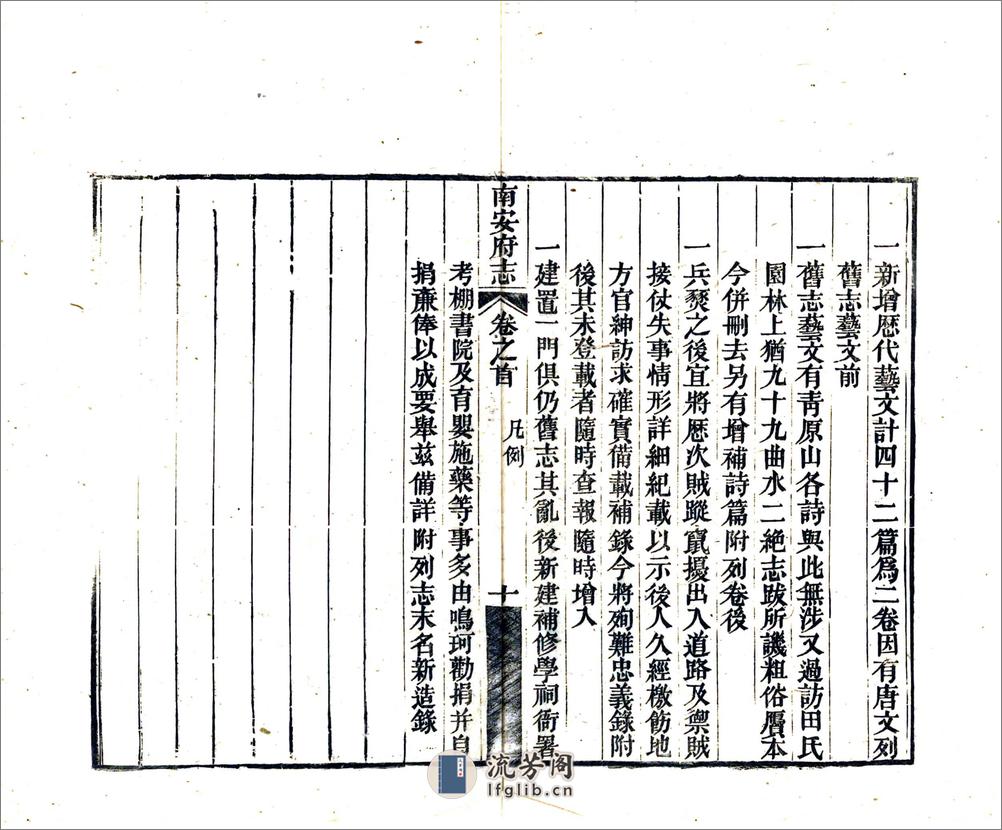 一新增歷代藝文計四十二篇為二卷因有唐文列
舊志藝文前
一舊志藝文有靑原山各詩與此無涉又過訪田氏
園林上猶九十九曲水二絶志跋所譏粗俗贋本
今併刪去另有增補詩篇附列卷後
一兵燹之後宜將歷次賊蹤竄擾出入道路及禦賊
接仗失事情形詳細紀載以示後人久經檄飭地
方官紳訪求確實備載補錄今將殉難忠義錄附
後其未登載者隨時查報隨時增入
一建置一門俱仍舊志其亂後新建補修學祠衙署
南安府志 卷之首 凡例 十
考棚書院及育嬰施藥等事多由鳴珂勸捐幷自
捐亷俸以成要舉兹備詳附列志末名新造錄
流芳阁
lfglib.cn